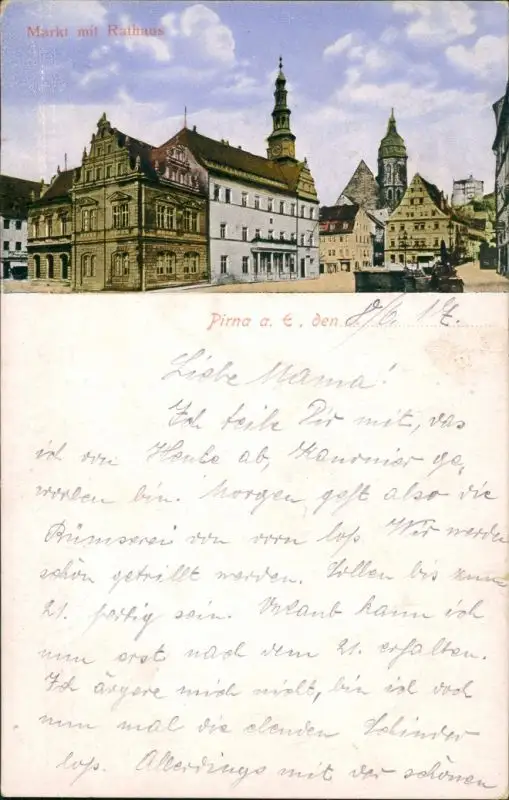 Markt mit Rathaus
Pirna a. E., den 8/6. 17.
Liebe Mama!
Ich teile Dir mit, das
ich von Heute ab, Kanonier ge„
worden bin. Morgen geht also die
Bümserei von vorn loß Wir werden
schön getrillt werden. Sollen bis zum
21. fertig sein. Urlaub kann ich
nun erst nach dem 21. erhalten.
Ich ärgere mich nicht, bin ich doch
nun mal die elenden Schinder
loß. Allerdings mit der schönen